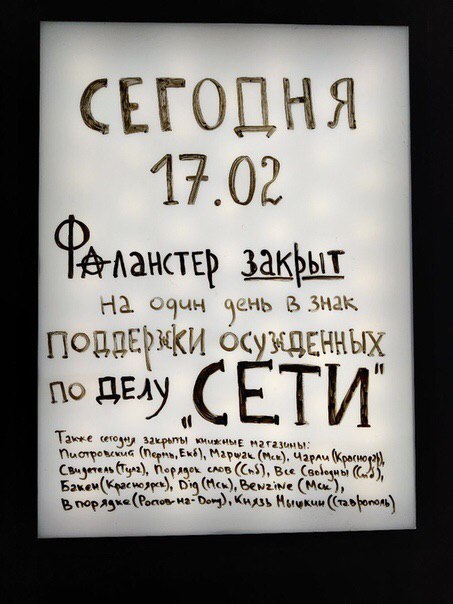 СЕГОДНЯ
17.02
Фаланстер закрыт
на один день в знак
поддержки осужденных
по делу „СЕТИ"
Также сегодня закрыты книжные магазины:
Пиотровский (Пермь, Екб), Маршак (Мск), Чарли (Краснодар),
Свидетель (Тула), Порядок слов (Спб), Все Свободны (Спб),
Бакен (Красноярск), Dig (Мск), Benzine (Мск),
В порядке (Ростов-на-Дону), Князь Мышкин (Ставрополь)